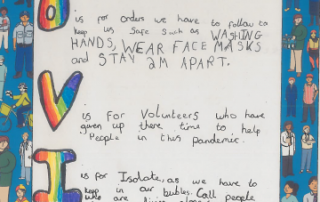 O
is for orders we have to follow to
keep us safe such as WASHING
HANDS, WEAR FACE MASKS
and STAY 2M APART.
V
is for Volunteers who have
given up there time to help
People in this pandemic.
I
is for Isolate, as we have to
keep in our bubles. Call people
who are